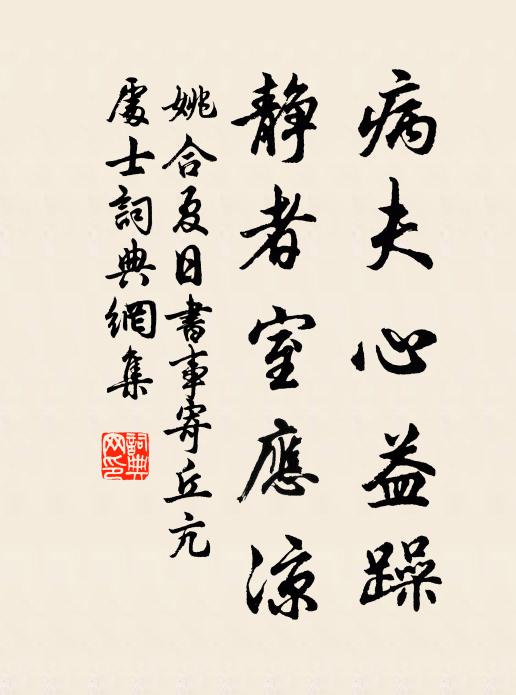 病夫心益躁
静者室應凉
姚合夏日書事寄丘亢
處士詞典網集
詞典網印